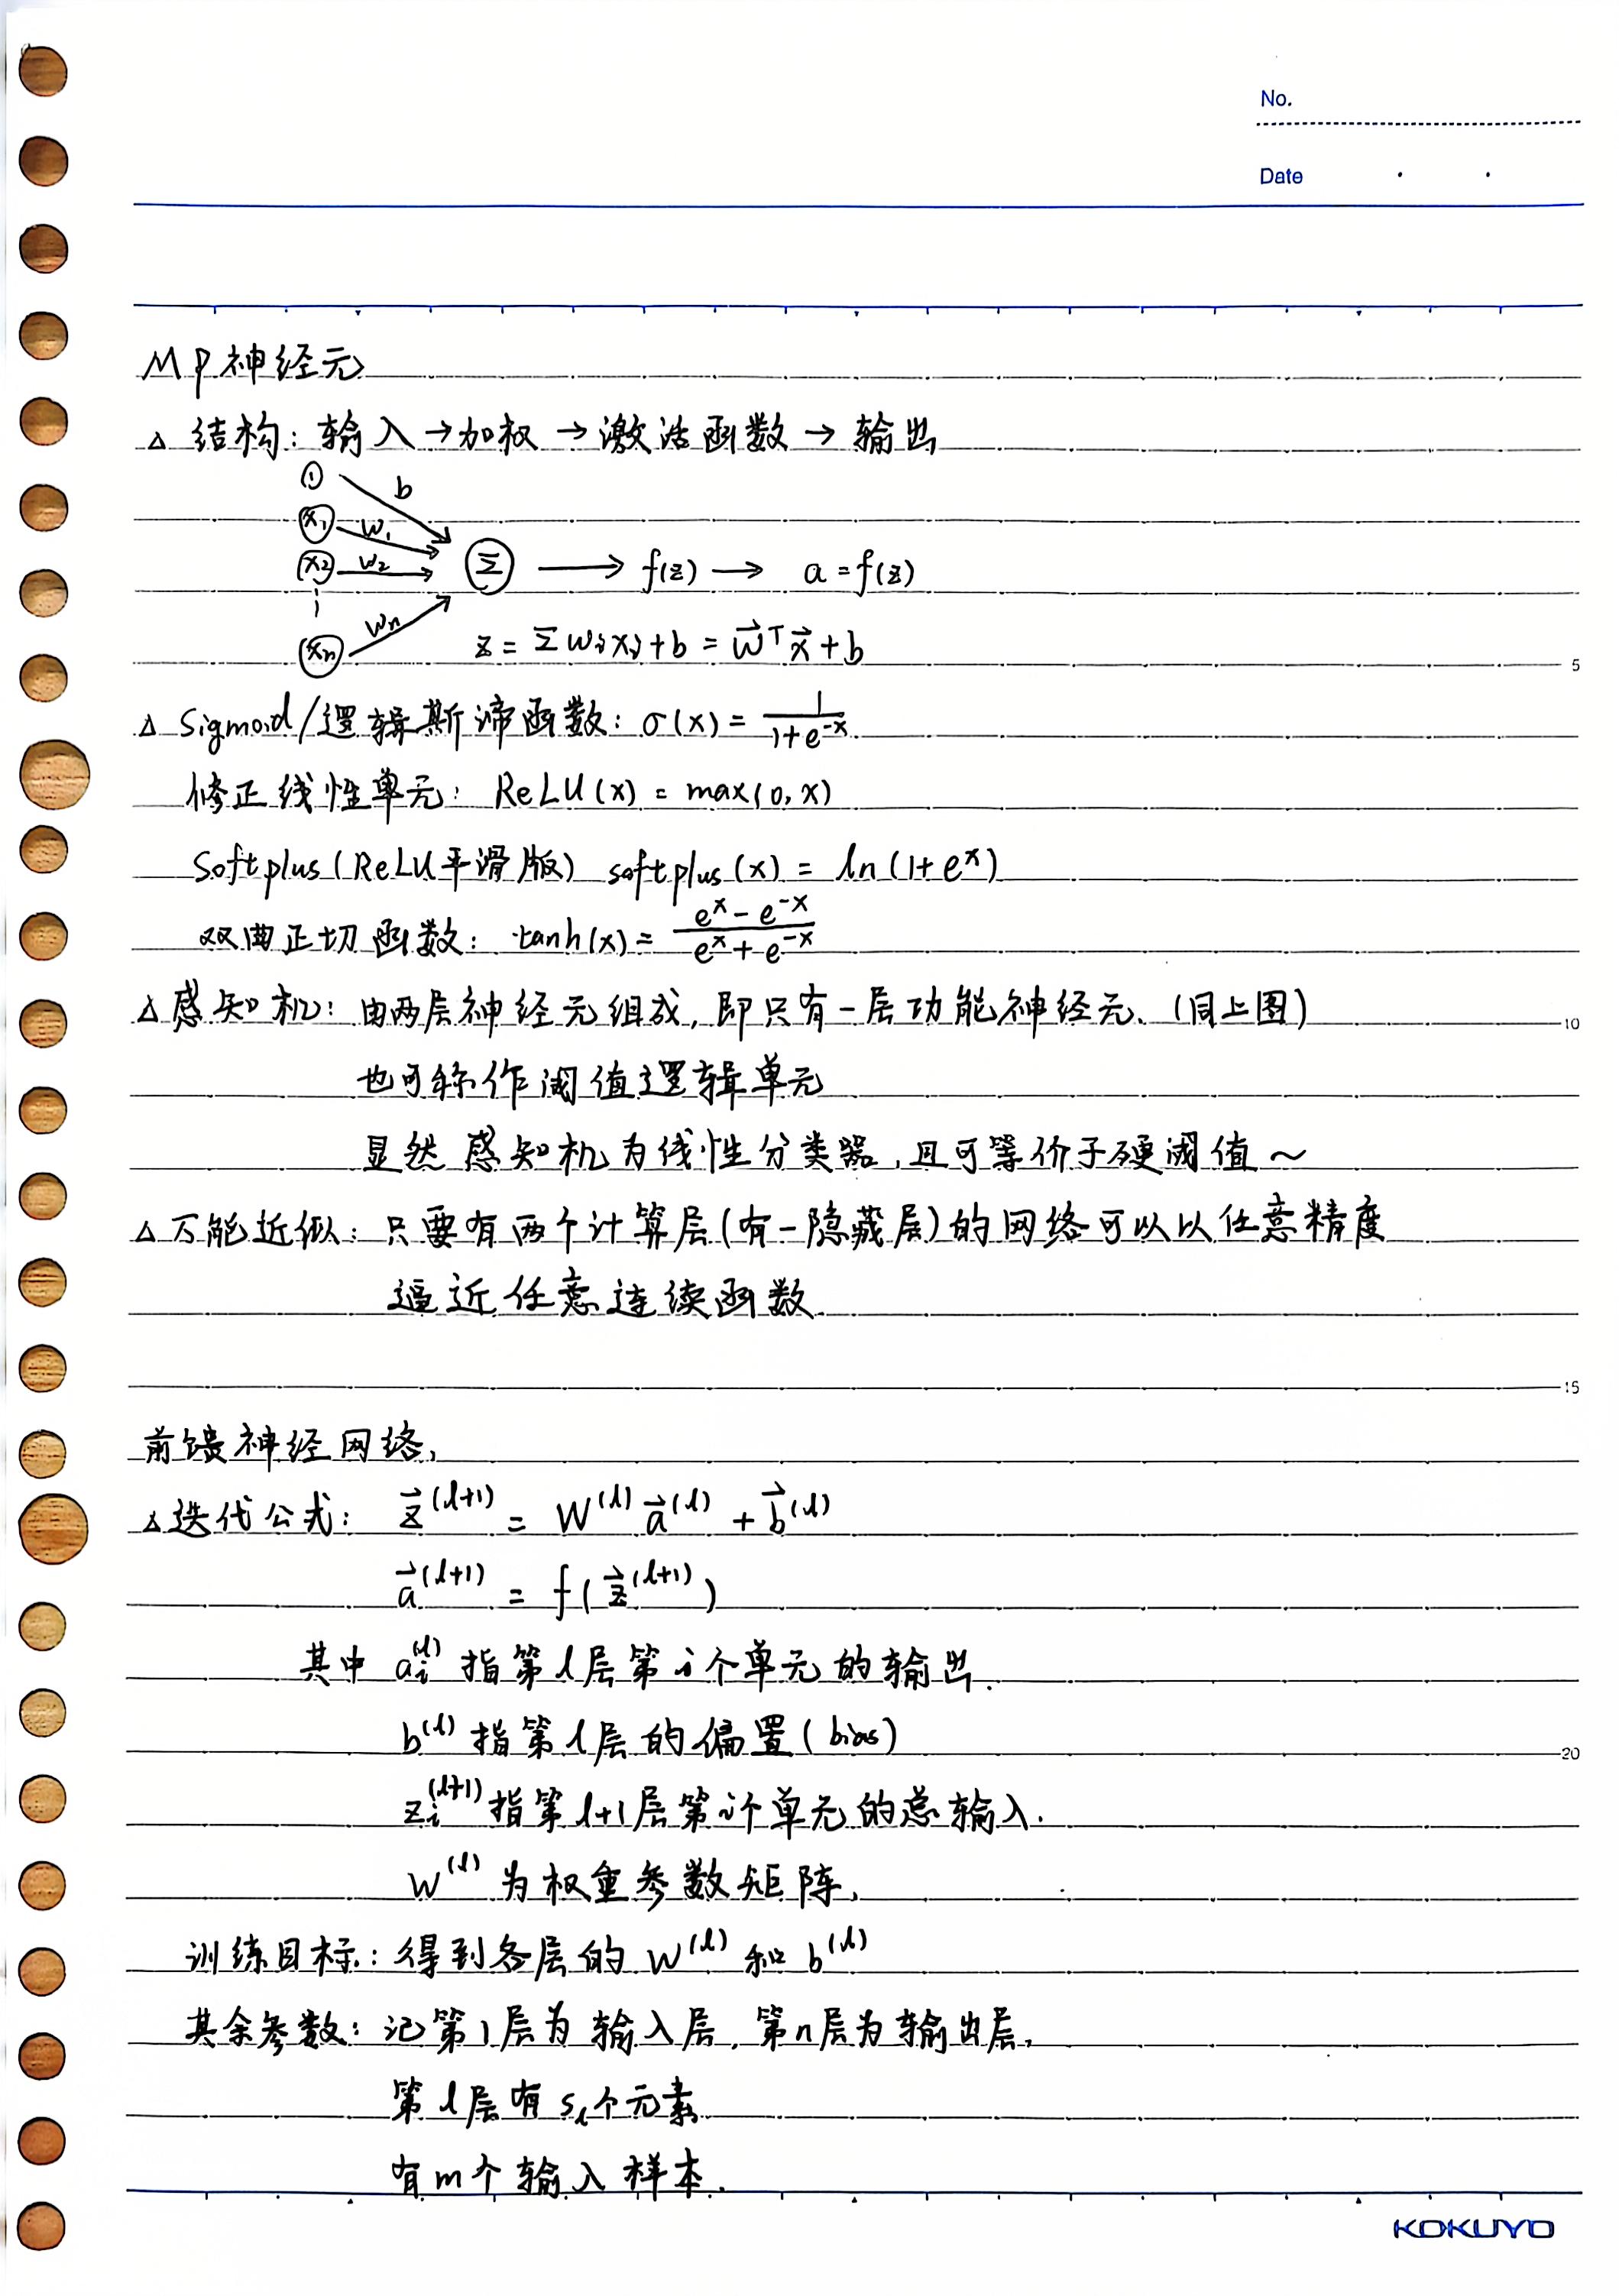 No.
Date
MP神经元
△ 结构: 输入→加权→激活函数→输出
① b
x₁ w₁
x₂ w₂ Σ → f(z) → a = f(z)
⋮
xₙ wₙ z = Σ wᵢxᵢ + b = w⃗ᵀx⃗ + b
5
△ Sigmoid/逻辑斯谛函数: σ(x) = 1/(1+e^-x)
修正线性单元: ReLU(x) = max(0, x)
Softplus(ReLU平滑版) softplus(x) = ln(1+e^x)
双曲正切函数: tanh(x) = (e^x - e^-x)/(e^x + e^-x)
△ 感知机: 由两层神经元组成, 即只有一层功能神经元. (同上图)
10
也可称作阈值逻辑单元
显然感知机为线性分类器, 且可等价于硬阈值~
△ 万能近似: 只要有两个计算层(有一隐藏层)的网络可以以任意精度
逼近任意连续函数.
15
前馈神经网络,
△ 迭代公式: z⃗^(l+1) = W^(l) a⃗^(l) + b⃗^(l)
a⃗^(l+1) = f(z⃗^(l+1))
其中 aᵢ^(l) 指第l层第i个单元的输出.
b^(l) 指第l层的偏置(bias)
20
zᵢ^(l+1) 指第l+1层第i个单元的总输入.
W^(l) 为权重参数矩阵,
训练目标: 得到各层的 W^(l) 和 b^(l)
其余参数: 记第1层为输入层, 第n层为输出层,
第l层有 s_l 个元素.
有m个输入样本.
KOKUYO